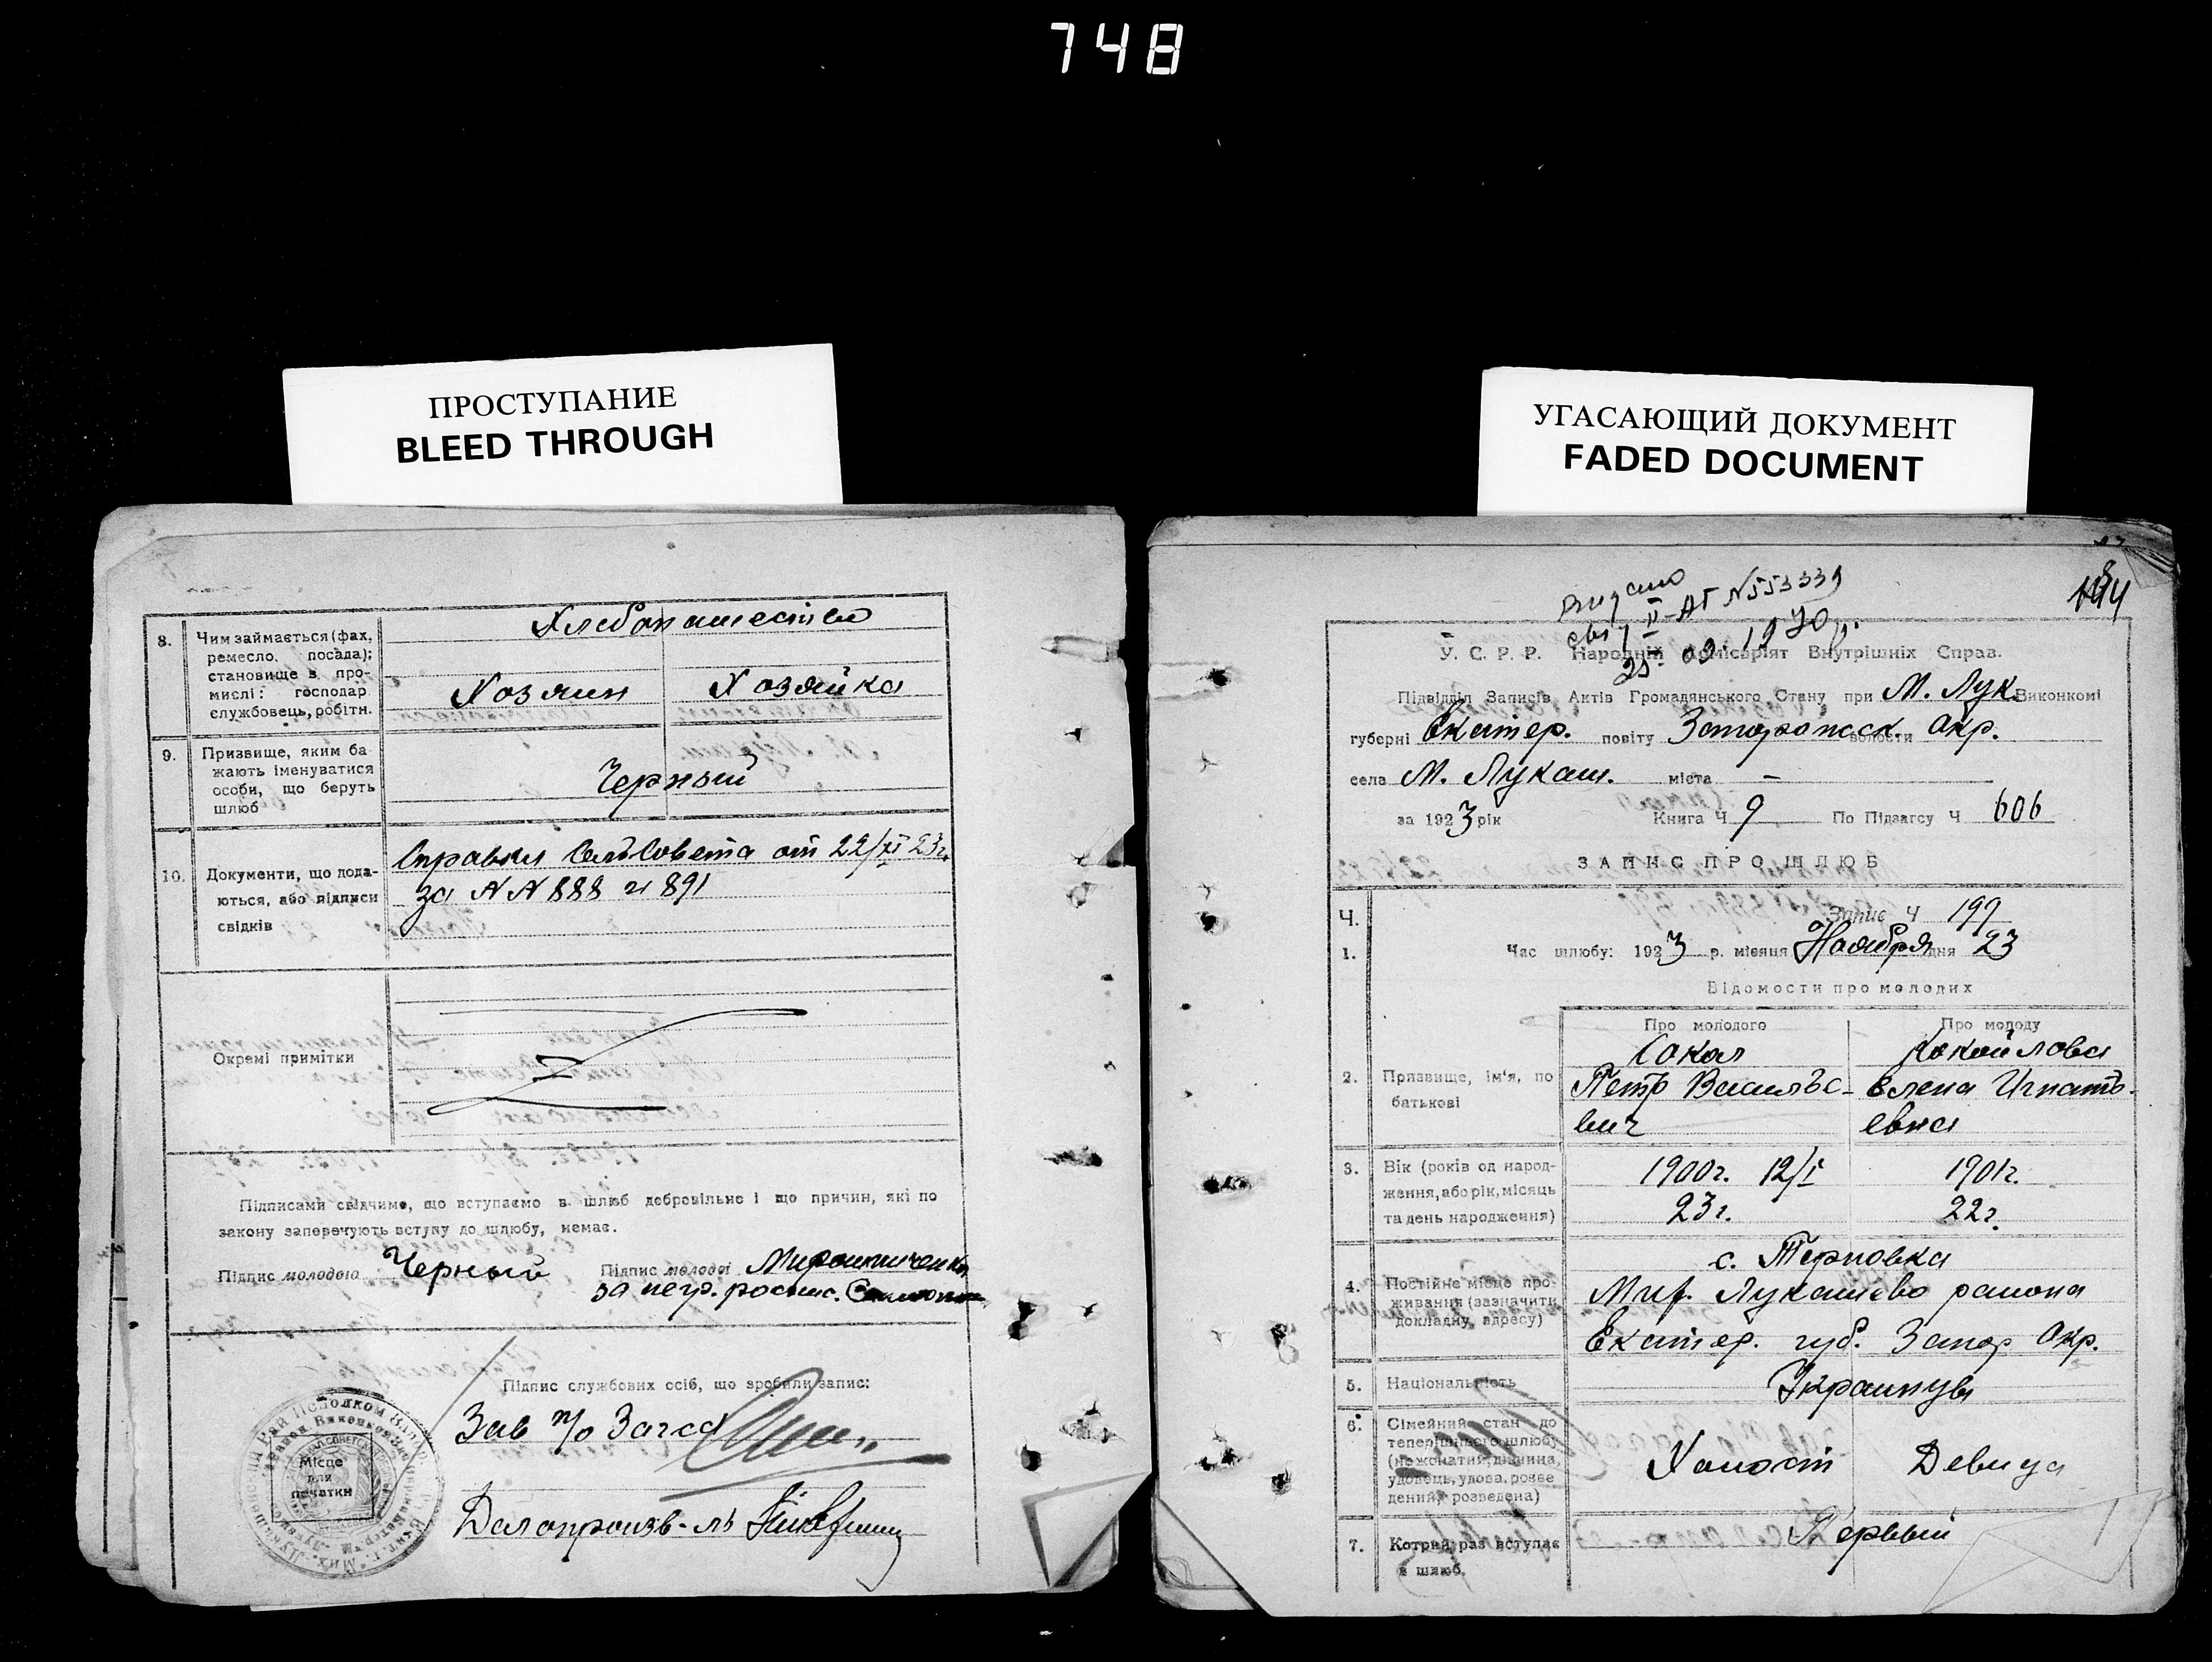 748
ПРОСТУПАНИЕ
BLEED THROUGH
УГАСАЮЩИЙ ДОКУМЕНТ
FADED DOCUMENT
8. Чим займається (фах,
ремесло, посада);
становище в про-
мислі: господар
службовець, робітн.
Хлебопашество
Хозяин Хозяйка
9. Призвище, яким ба-
жають іменуватися
особи, що беруть
шлюб
Черный
10. Документи, що дода-
ються, або підписи
свідків
Справки СельСовета от 22/XI 23г.
за NN 888 и 891
Окремі примітки
Підписами свідчимо, що вступаємо в шлюб добровільно і що причин, які по
закону заперечують вступу до шлюбу, немає.
Підпис молодого Черный Підпис молодої Мирошниченко
за негр. роспис.
Підпис службових осіб, що зробили запис:
Зав п/о Загса
Делопроизв-ль
Місце
для
печатки
194
видано
свід II-АГ N553339
25. 09. 1970 р.
У. С. Р. Р. Народній Комісаріят Внутрішніх Справ.
Підвідділ Записів Актів Громадянського Стану при М. Лук. Виконкомі
губерні Екатер. повіту Запорожск. волости Окр.
села М. Лукаш. міста —
за 1923 рік Книга Ч 9 По Підзагсу Ч 606
ЗАПИС ПРО ШЛЮБ
Ч. Запис Ч 199
1. Час шлюбу: 1923 р. місяця Ноября дня 23
Відомости про молодих
Про молодого Про молоду
2. Призвище, ім'я, по
батькові
Сокол
Петр Василье-
вич
Кокайлова
Елена Игнать-
евна
3. Вік (років од народ-
ження, або рік, місяць
та день народження)
1900г. 12/I 1901г.
23г. 22г.
4. Постійне місце про-
живання (зазначити
докладну, адресу)
с. Терновка
Мих. Лукашево района
Екатер. губ. Запор Окр.
5. Національність
Украинцы
6. Сімейний стан до
теперішнього шлюбу
(нежонатий, дівчина,
удовець, удова, розве
дений, розведена)
Холост Девица
7. Котрий раз вступає
в шлюб.
Первый